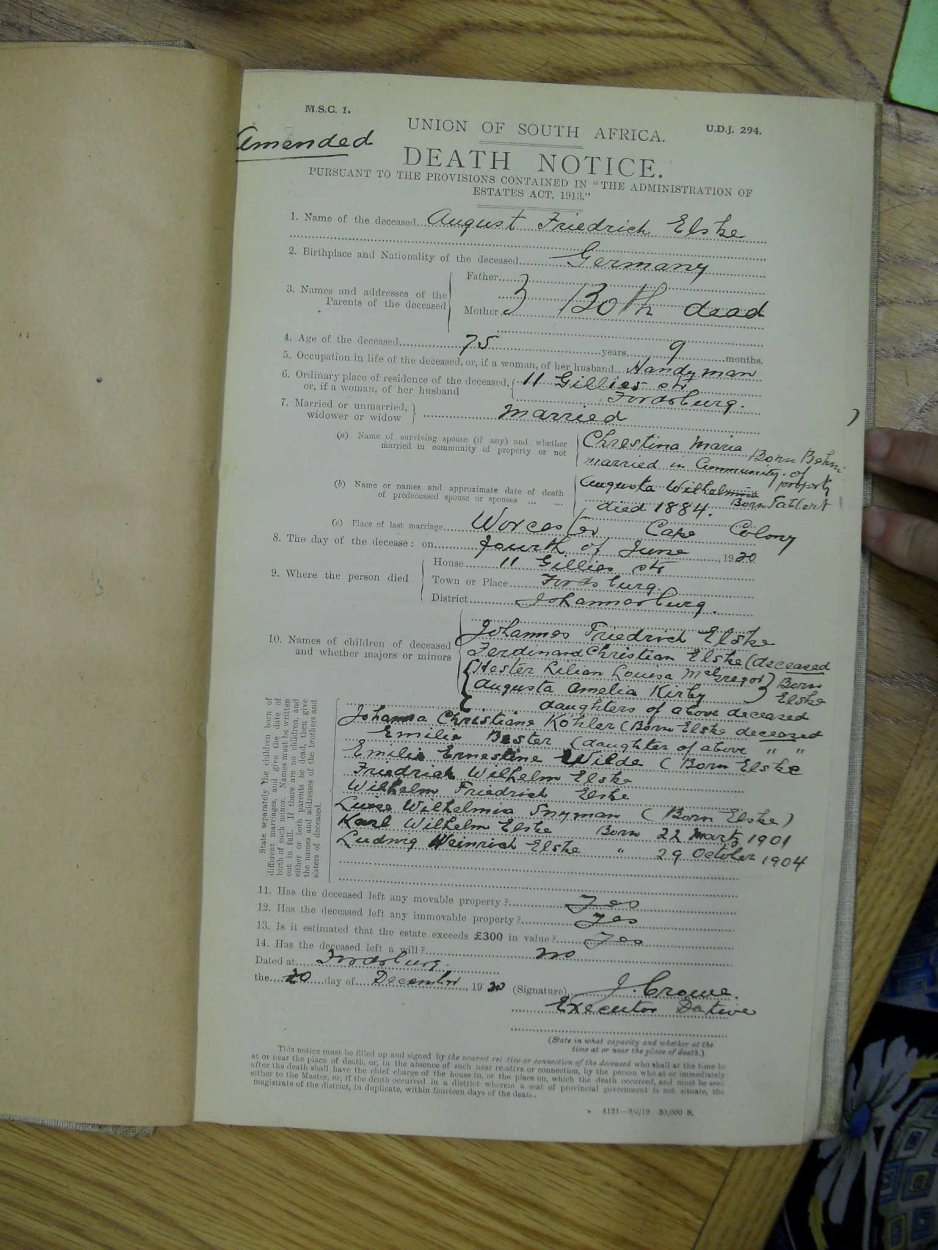 M.S.C. 1.
U.D.J. 294.
Amended
UNION OF SOUTH AFRICA.
DEATH NOTICE.
PURSUANT TO THE PROVISIONS CONTAINED IN "THE ADMINISTRATION OF
ESTATES ACT, 1913."
1. Name of the deceased August Friedrich Elske
2. Birthplace and Nationality of the deceased Germany
3. Names and addresses of the Parents of the deceased
Father
Mother
Both dead
4. Age of the deceased 75 years 9 months.
5. Occupation in life of the deceased, or, if a woman, of her husband Handyman
6. Ordinary place of residence of the deceased, or, if a woman, of her husband
11 Gillies str
Fordsburg.
7. Married or unmarried, widower or widow
married
(a) Name of surviving spouse (if any) and whether
married in community of property or not
Chrestina Maria Born Behm
married in Community of
property
(b) Name or names and approximate date of death
of predeceased spouse or spouses
Augusta Wilhelmina
Born
died 1884.
(c) Place of last marriage Worcester Cape Colony
8. The day of the decease: on fourth of June, 1920
9. Where the person died
House 11 Gillies str
Town or Place Fordsburg
District Johannesburg.
10. Names of children of deceased
and whether majors or minors
Johannes Friedrich Elske
Ferdinand Christian Elske (deceased
Hester Lilian Louisa McGregor
Augusta Amelia Kirby
Born
Elske
daughters of above deceased
State separately the children born of
different marriages, and give the date of
birth of each minor. Names must be written
out in full. If there are no children and
either or both parents be dead, then give
the names and addresses of the brothers and
sisters of deceased.
Johanna Christiane Kohler (Born Elske deceased
Emilie Bester (daughter of above " "
Emilie Ernestine Wilde (Born Elske
Friedrich Wilhelm Elske
Wilhelm Friedrich Elske
Wilhelmia Snyman (Born Elske)
Karl Wilhelm Elske Born 22 Marts 1901
Ludwig Heinrich Elske " 29 October 1904
11. Has the deceased left any movable property? Yes
12. Has the deceased left any immovable property? Yes
13. Is it estimated that the estate exceeds £300 in value? Yes
14. Has the deceased left a will? no
Dated at Fordsburg.
the 20 day of December, 1920
(Signature) J. Crowe.
Executor Dative
(State in what capacity and whether at the
time at or near the place of death.)
This notice must be filled up and signed by the nearest relative or connection of the deceased who shall at the time be
at or near the place of death, or, in the absence of such near relative or connection, by the person who at or immediately
after the death shall have the chief charge of the house in, or the place on, which the death occurred, and must be sent
either to the Master, or, if the death occurred in a district wherein a seat of provincial government is not situate, the
magistrate of the district, in duplicate, within fourteen days of the death.
4121—9/6/19 30,000 S.